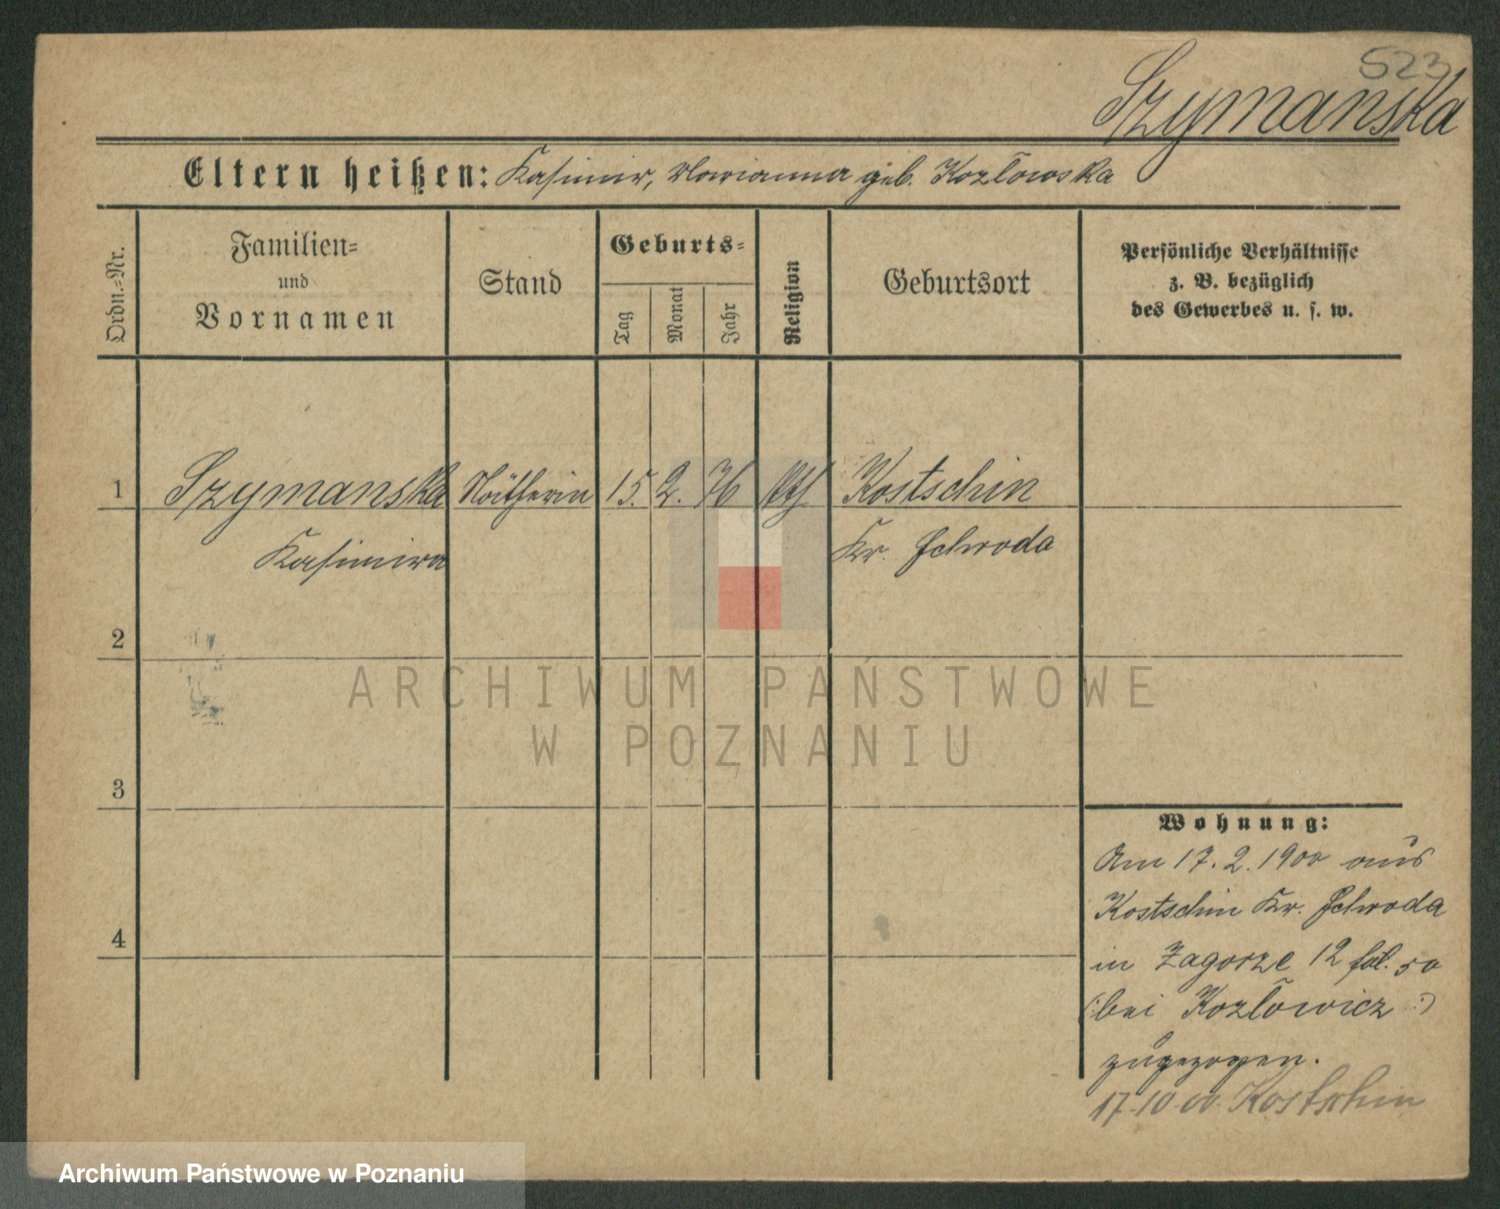 523
Szymanska
Eltern heißen: Kasimir, Marianna geb. Kozłowska
Ordn.-Nr.
Familien-
und
Vornamen
Stand
Geburts-
Tag
Monat
Jahr
Religion
Geburtsort
Persönliche Verhältnisse
z. B. bezüglich
des Gewerbes u. s. w.
1 Szymanska Nätherin 15. 2. 76 kth Kostschin
Kasimira Kr. Schroda
2
3
4
Wohnung:
Am 17. 2. 1900 aus
Kostschin Kr. Schroda
in Zagorze 12 fol. 50
(: bei Kozłowicz :)
zugezogen.
17.10.00. Kostschin
ARCHIWUM PAŃSTWOWE
W POZNANIU
Archiwum Państwowe w Poznaniu